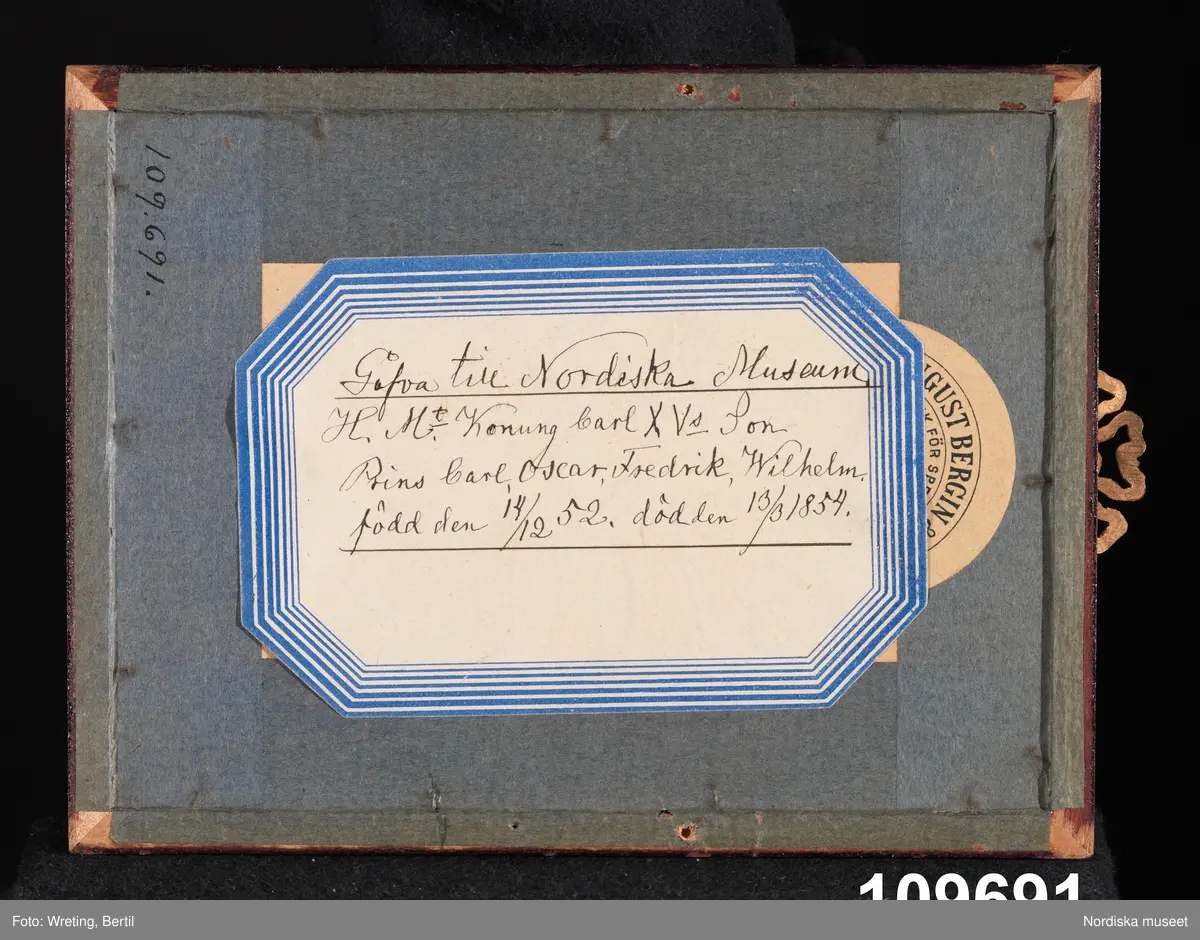 109.691.
Gåfva till Nordiska Museum
H. Mt. Konung Carl XVs Son
Prins Carl, Oscar, Fredrik, Wilhelm.
född den 14/12 52. död den 13/3 1854.
UGUST BERGIN
K FÖR SPE
109691
Foto: Wreting, Bertil
Nordiska museet